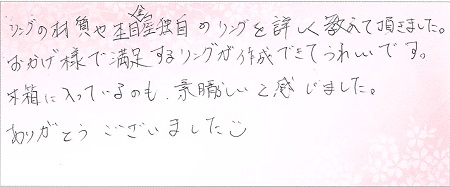 リングの材質や杢目金屋独自のリングを詳しく教えて頂きました。
おかげ様で満足するリングが作成できてうれしいです。
木箱に入っているのも、素晴しいと感じました。
ありがとうございました